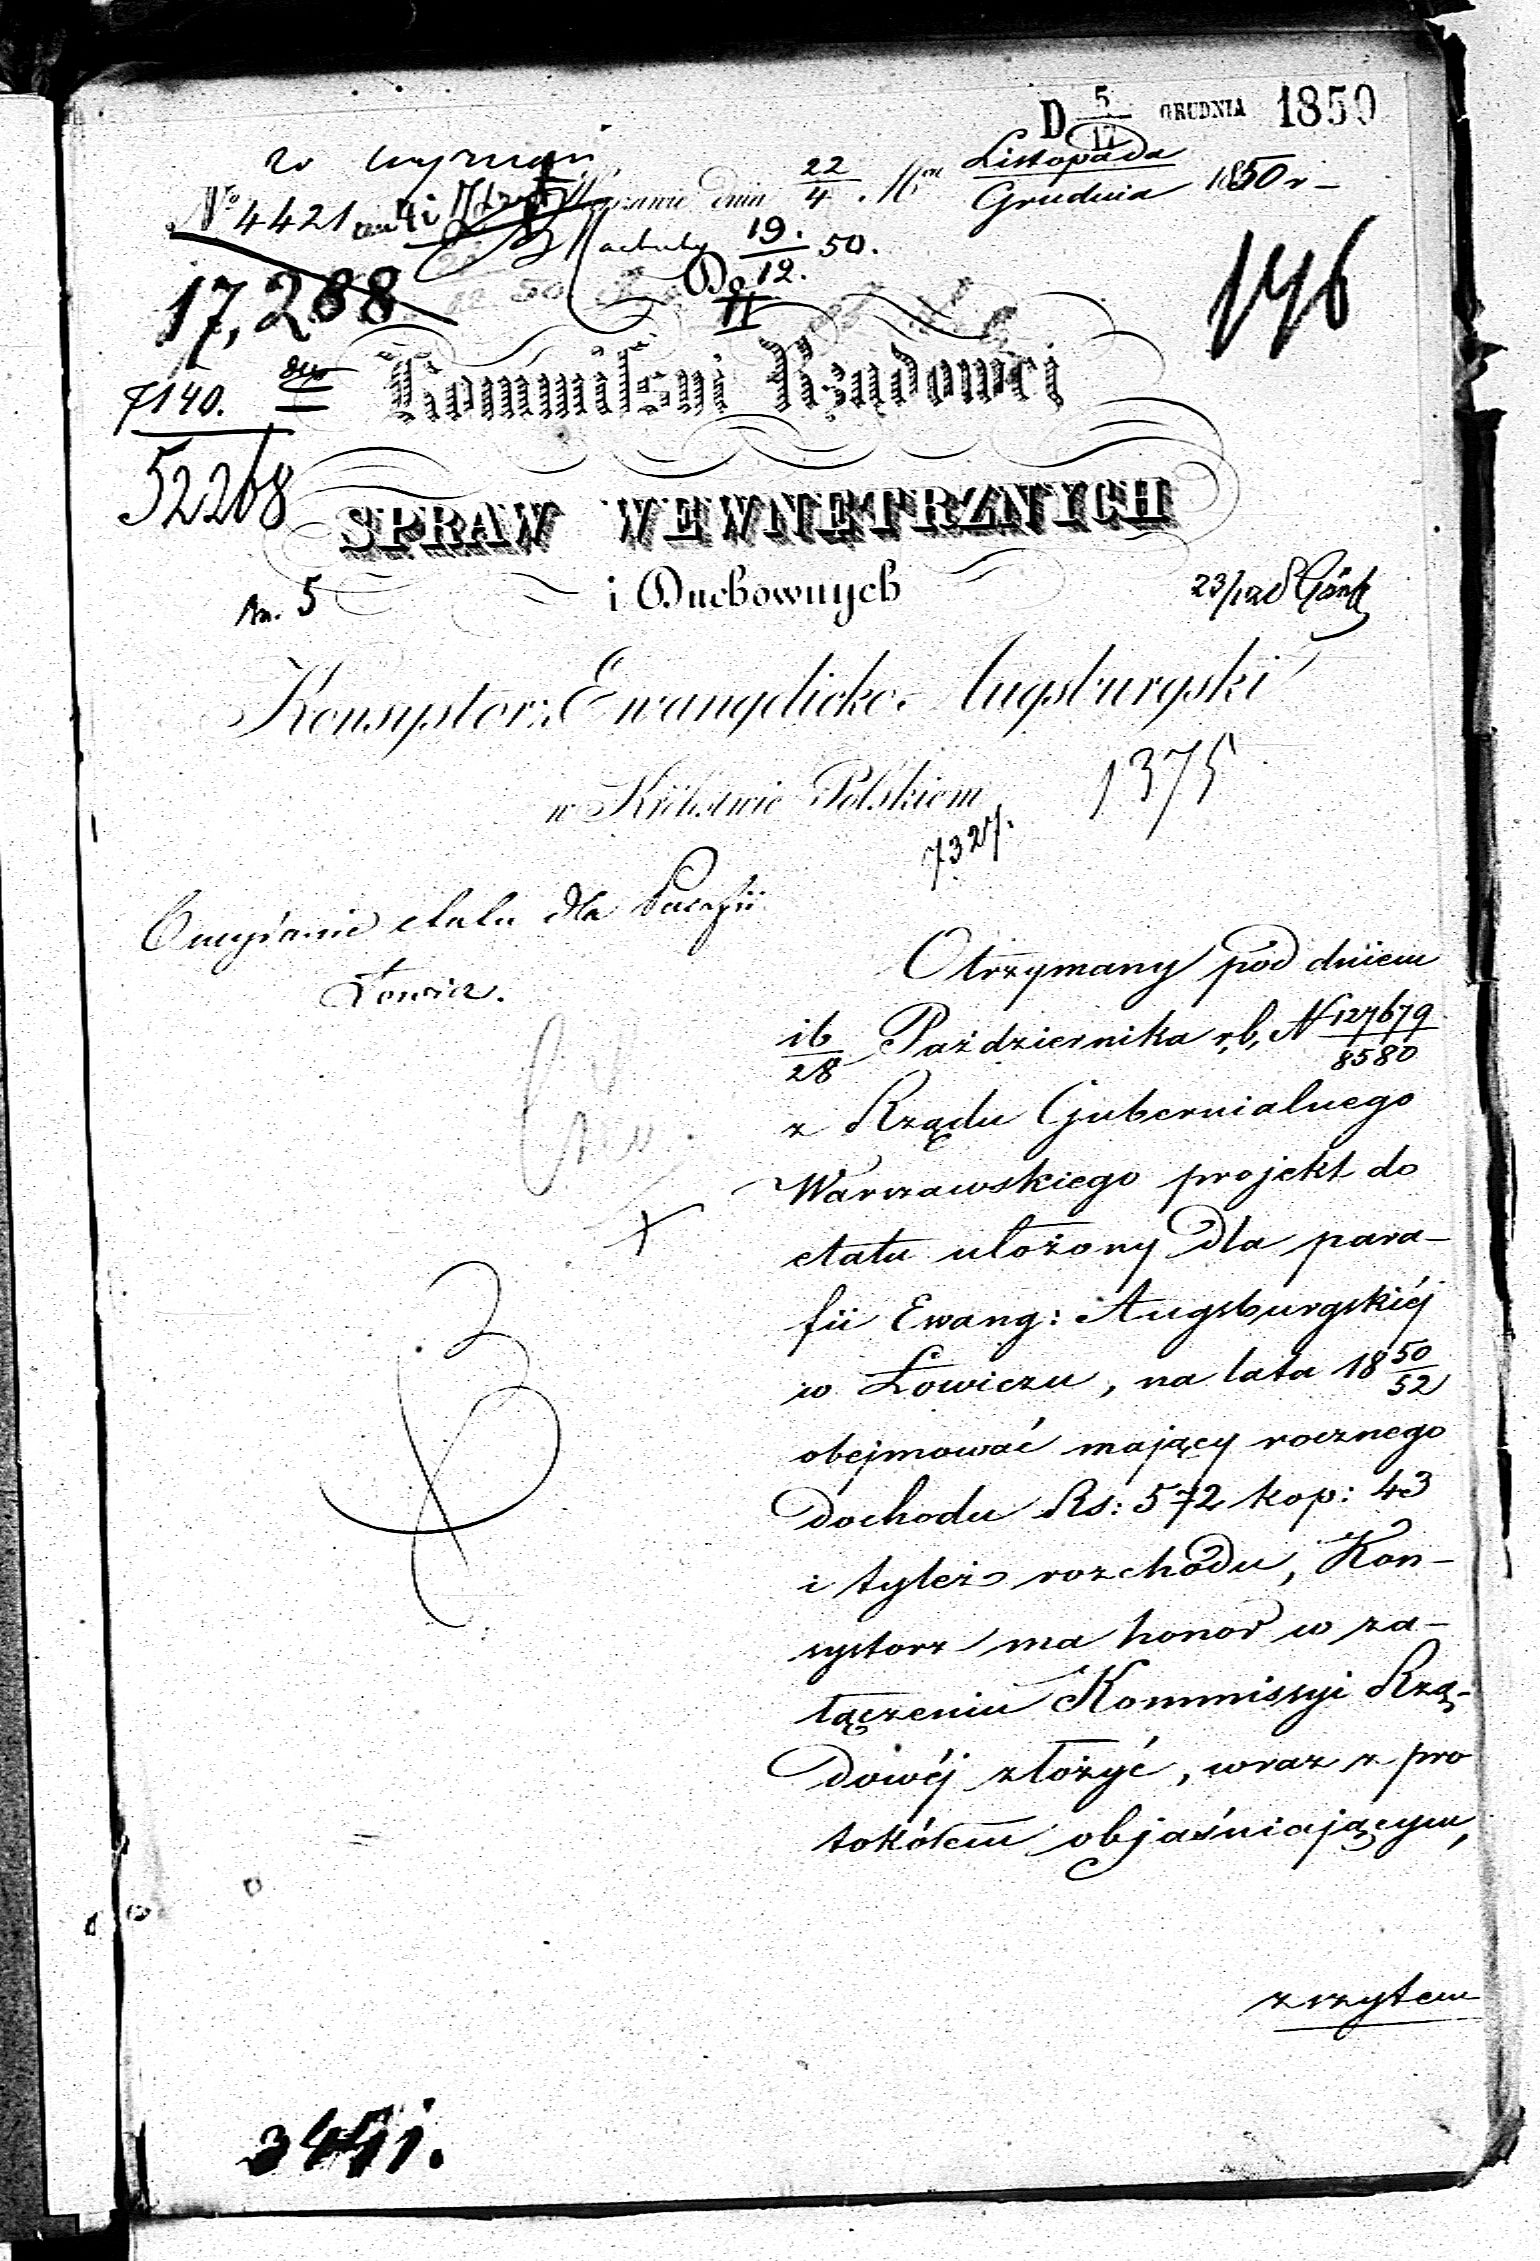 D 5/17 GRUDNIA 1850
w Warszawie dnia 22/4 Mca Listopada/Grudnia 1850 r
No 4421
19./12. 50.
17,288
146
Do
Kommissyi Rządowéj
7140.
52268
SPRAW WEWNĘTRZNYCH
i Duchownych
An. 5
Konsystorz Ewangelicko-Augsburgski
w Królestwie Polskiem
1375
7327.
etatu dla Parafii
Łowicz.
Otrzymany pod dniem
16/28 Października r.b. N 127679/8580
z Rządu Gubernialnego
Warszawskiego projekt do
etatu ułożony dla para-
fii Ewang: Augsburgskiéj
w Łowiczu, na lata 18 50/52
obejmować mający rocznego
dochodu Rs: 572 kop: 43
i tyleż rozchodu, Kon-
systorz ma honor w za-
łączeniu Kommissyi Rzą-
dowéj złożyć, wraz z pro
tokółem objaśniającym,
zszytem